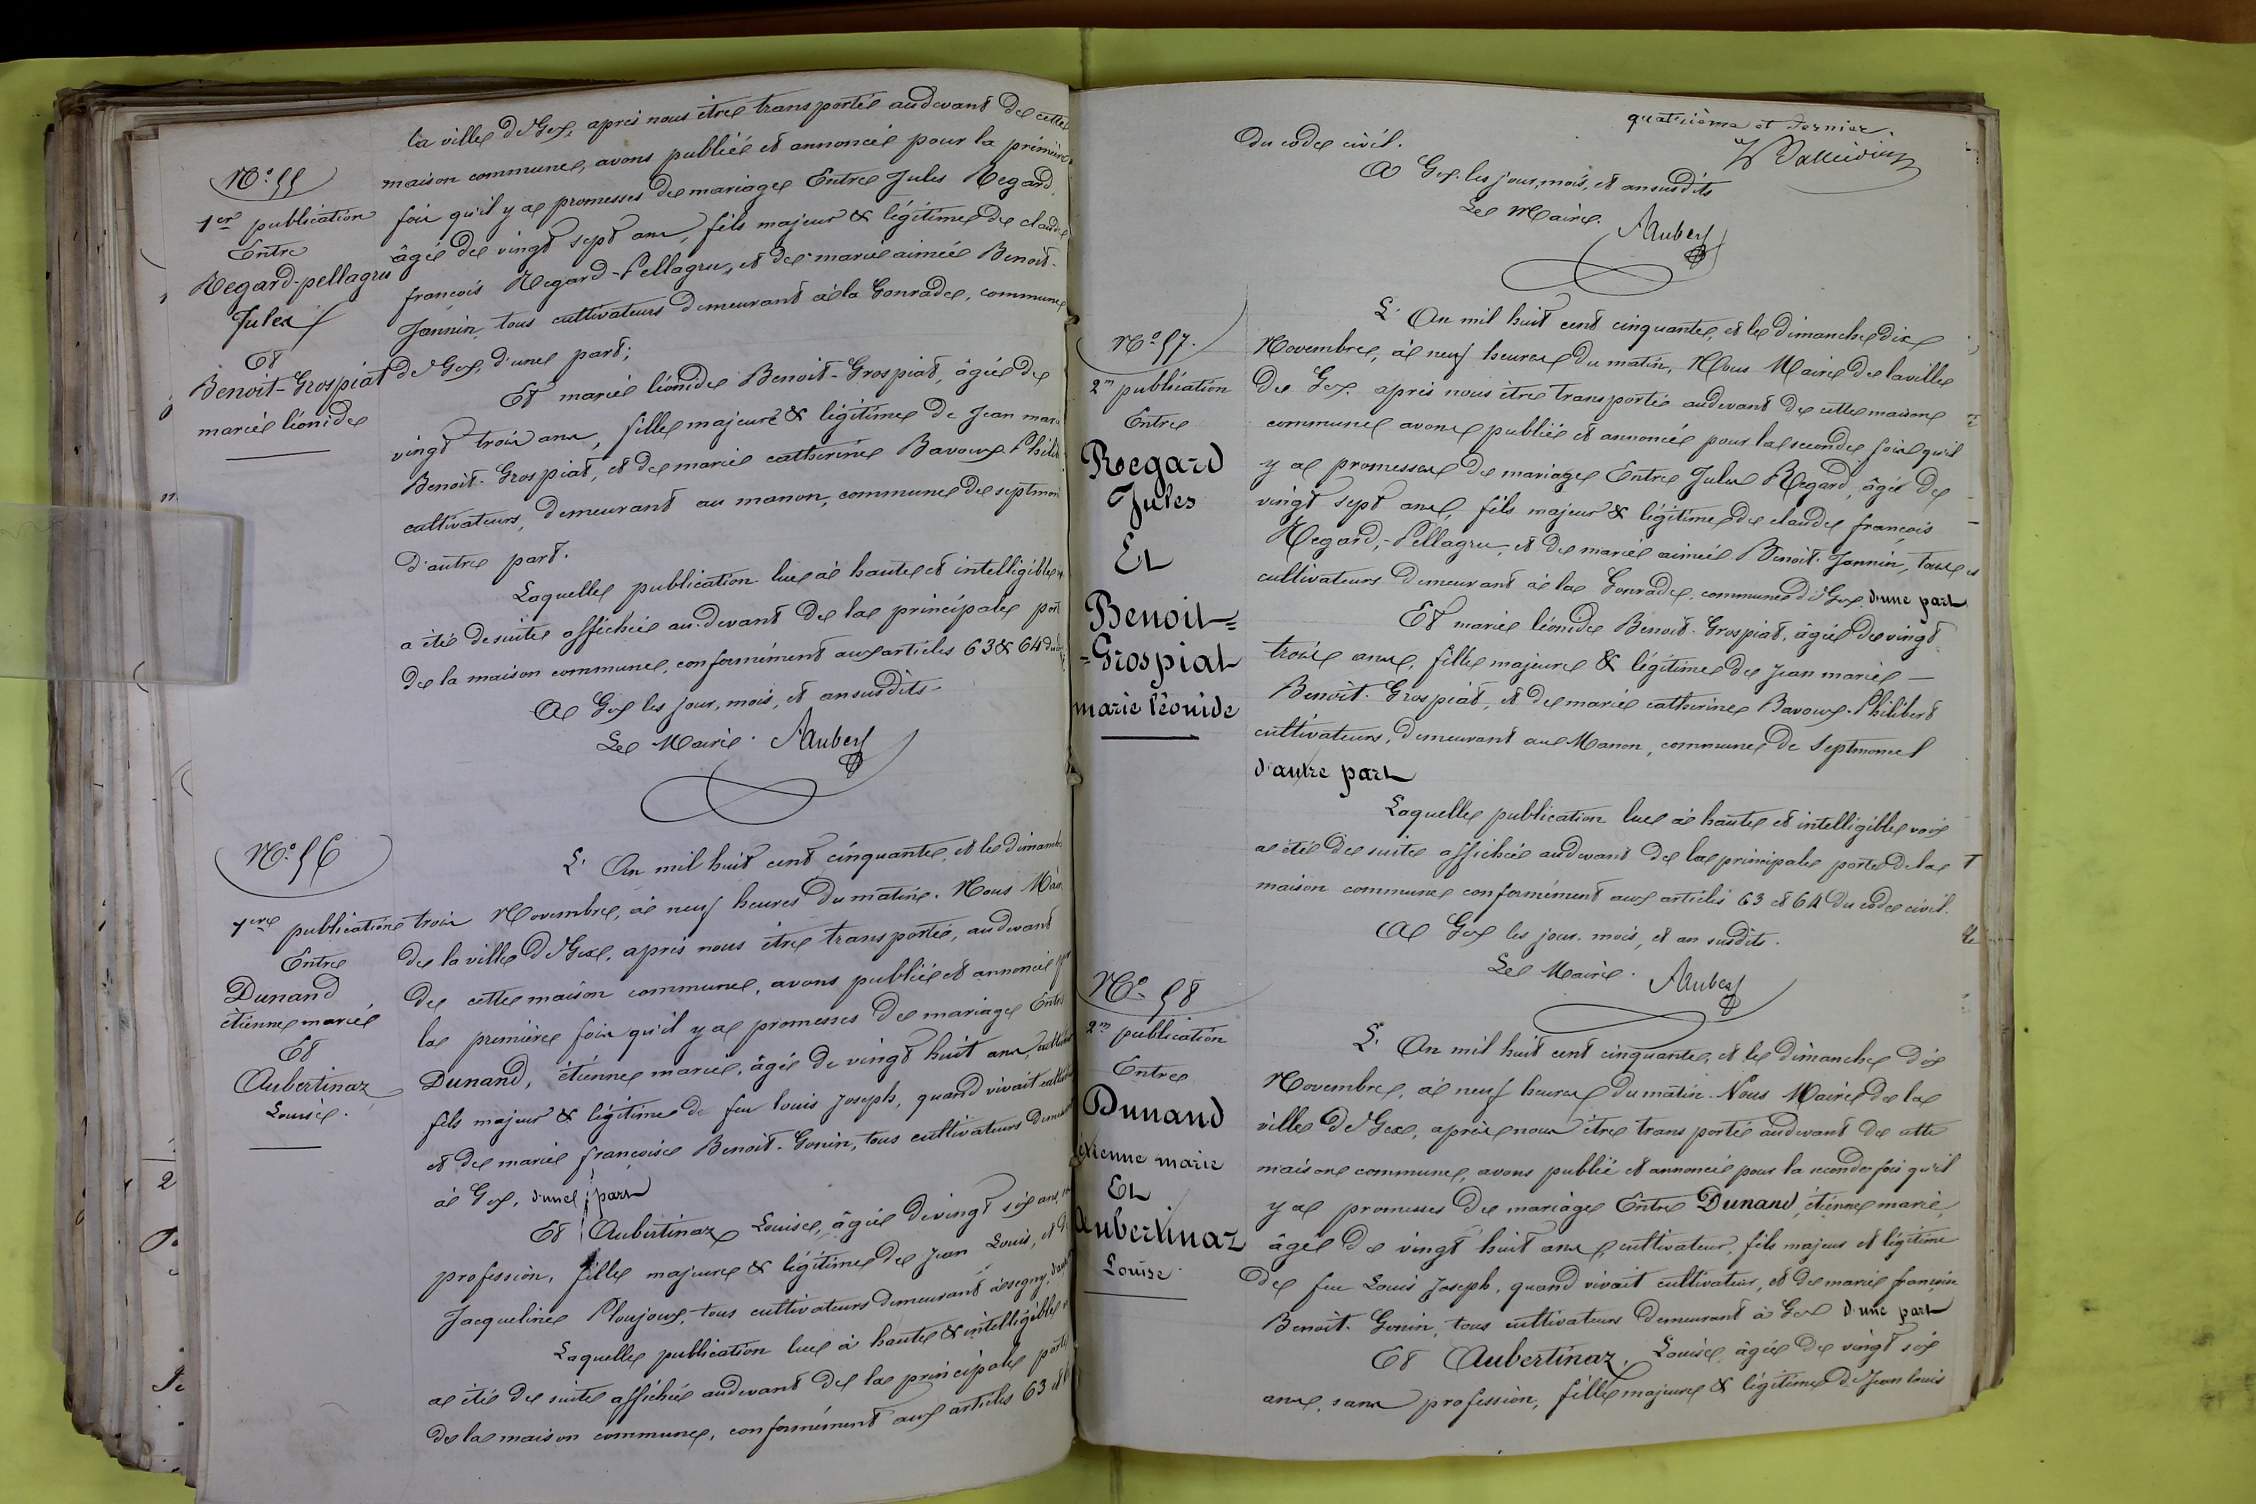 la ville de Gex, après nous être transporté audevant de cette
maison commune, avons publié et annoncé pour la première
N.º 55
1ere publication
Entre
Regard-pellagru
Jules
Et
Benoit-Grospiat
marie léonide
fois qu'il y a promesses de mariage Entre Jules Regard,
âgé de vingt sept ans, fils majeur & légitime de claude
françois Regard-Pellagru, et de marie aimée Benoit-
Jannin, tous cultivateurs demeurant à la Gonrade, commune
de Gex, d'une part;
Et marie léonide Benoit-Grospiat, âgée de
vingt trois ans, fille majeure & légitime de Jean marie
Benoit-Grospiat, et de marie catherine Bavoux-Philib
cultivateurs, demeurant au manon, commune de septmon
d'autre part.
Laquelle publication lue à haute et intelligible
a été de suite affichée au-devant de la principale port
de la maison commune, conformément aux articles 63 & 64 du
A Gex les jour, mois, et an susdits
Le Maire. Aubert
N.º 56
1ere publication
Entre
Dunand
étienne marie
Et
Aubertinaz
Louise.
L'An mil huit cent cinquante, et le dimanche
trois Novembre, à neuf heures du matin. Nous Maire
de la ville de Gex, après nous être transporté, audevant
de cette maison commune, avons publié et annoncé
la première fois qu'il y a promesses de mariage Entre
Dunand, étienne marie, âgé de vingt huit ans,
fils majeur & légitime de feu louis Joseph, quand vivait
et de marie françoise Benoit-Gonin, tous cultivateurs
à Gex, d'une part
Et Aubertinaz Louise, âgée de vingt six ans,
profession, fille majeure & légitime de Jean Louis, et
Jacqueline Ploujoux, tous cultivateurs demeurant à segny,
Laquelle publication lue à haute & intelligible
a été de suite affichée audevant de la principale porte
de la maison commune, conformément aux articles 63 et
quatrième et dernier.
du code civil.
A Gex, les jour, mois, et an susdits
Le Maire. Aubert
N.º 57.
2m publication
Entre
Regard
Jules
Et
Benoit=
=Grospiat
marie léonide
L'An mil huit cent cinquante, et le dimanche dix
Novembre, à neuf heures du matin, Nous Maire de la ville
de Gex. après nous être transporté audevant de cette maison
commune avons publié et annoncé pour la seconde fois qu'il
y a promesses de mariage Entre Jules Regard, âgé de
vingt sept ans, fils majeur & légitime de claude françois
Regard,-Pellagru, et de marie aimée Benoit-Jannin, tous
cultivateurs demeurant à la Gonrade. commune de Gex d'une part
Et marie léonide Benoit-Grospiat, âgée de vingt
trois ans, fille majeure & légitime de Jean marie
Benoit-Grospiat, et de marie catherine Bavoux-Philibert
cultivateurs, demeurant au Manon, commune de Septmoncel
d'autre part
Laquelle publication lue à haute et intelligible voix
a été de suite affichée audevant de la principale porte de la
maison commune conformément aux articles 63 et 64 du code civil.
A Gex les jour. mois, et an susdits.
Le Maire. Aubert
N.º 58
2m publication
Entre
Dunand
étienne marie
Et
Aubertinaz
Louise
L'An mil huit cent cinquante, et le dimanche dix
Novembre, à neuf heures du matin. Nous Maire de la
ville de Gex, après nous être transporté audevant de cette
maison commune, avons publié et annoncé pour la seconde fois qu'il
y a promesses de mariage Entre Dunand, étienne marie,
âgé de vingt huit ans cultivateur, fils majeur et légitime
de feu Louis Joseph, quand vivait cultivateur, et de marie françoise
Benoit-Gonin, tous cultivateurs demeurant à Gex d'une part
Et Aubertinaz, Louise, âgée de vingt six
ans, sans profession, fille majeure & légitime de Jean louis